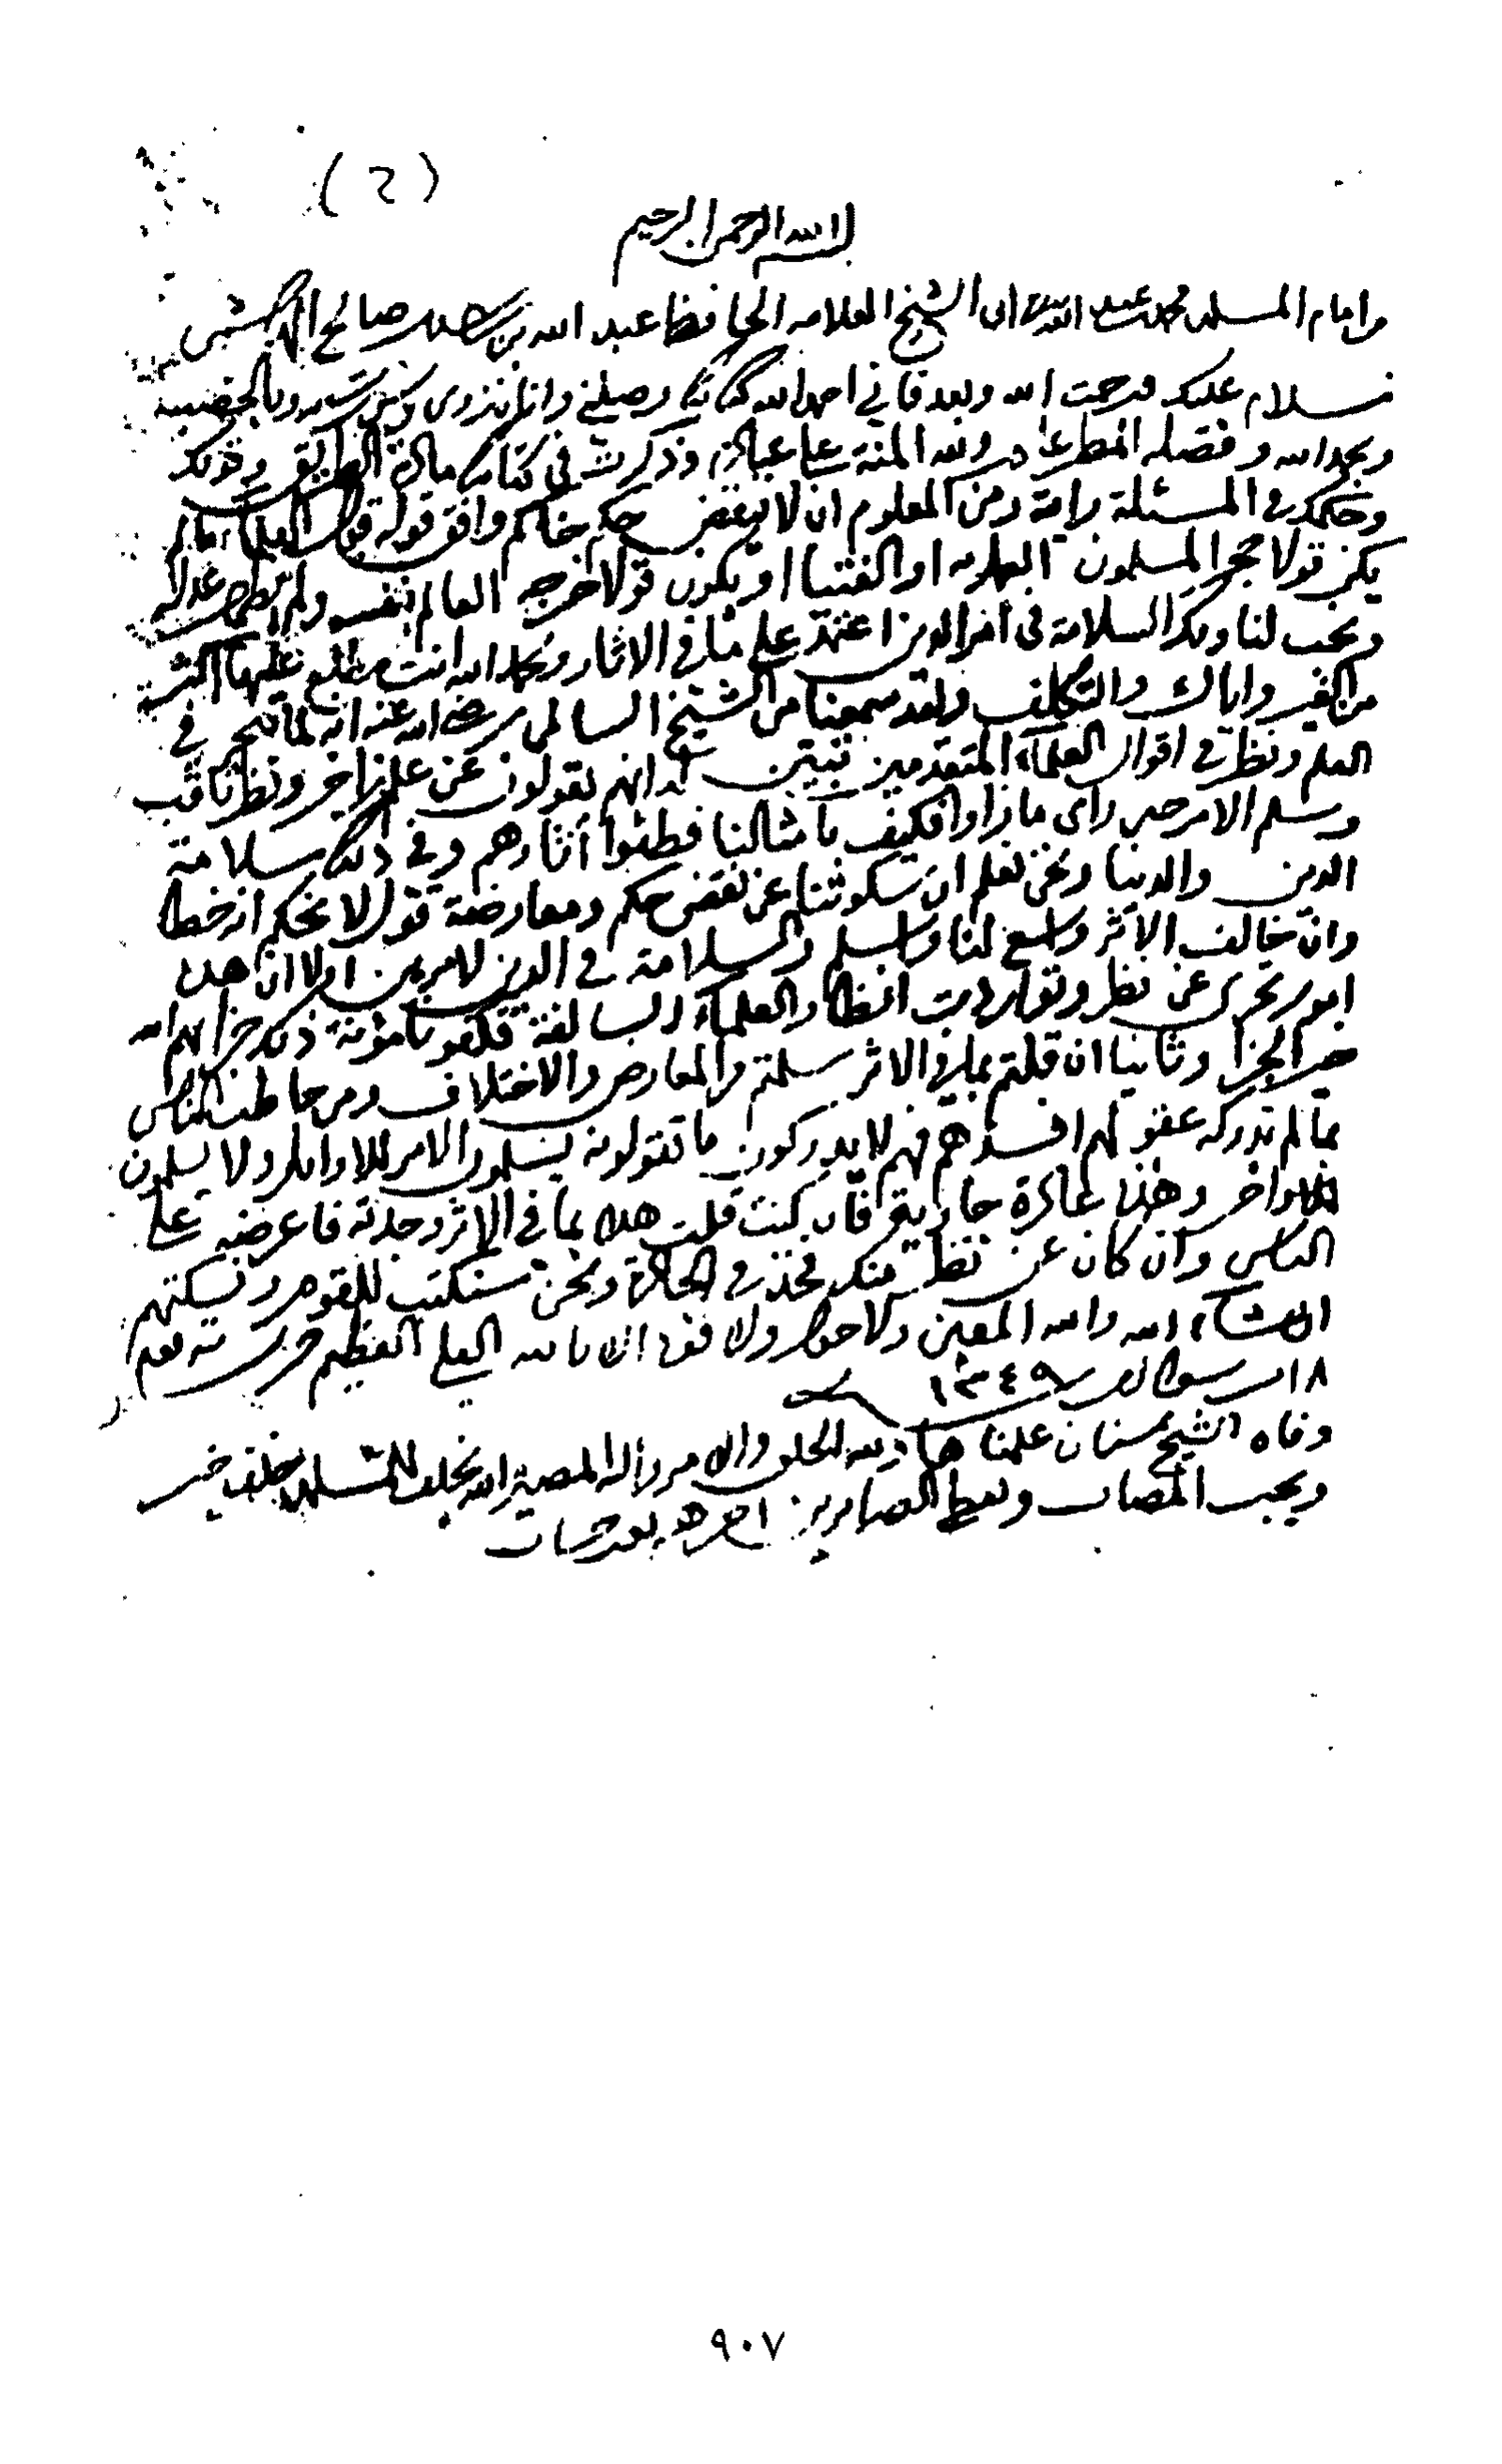 (٢)
بسم الله الرحمن الرحيم
من امام المسلمين محمد بن عبد الله الى الشيخ العلامه الحافظ عبد الله بن صالح
سلام عليك ورحمت الله وبعد فاني احمد الله كتابك وصلني وانا بنزوى
وبحمد الله وفضله المطر ولله المنة على عباده وذكرت في كتابك مادة الطريق وقولك
وحكمك في المسئلة ومن المعلوم ان لا ينقض حكم حاكم وافق قوله قول العلماء مالم
يكن قولا هجر المسلمون العمل به او الفتيا او يكون قولا خرجه العالم بنفسه ولم
ونحب لنا ولك السلامة في امر الدين اعتمد على ما في الاثار وبحمد الله انت مطلع عليها اكثر
من الغير واياك والتكلف ولقد سمعنا من الشيخ السالمي رضي الله عنه انه لما في
العلم ونظر في اقوال العلماء المتقدمين تبين له انهم يقولون عن علم ونظر ثاقب
وسلم الامر حين راى ما راوا فكيف بأمثالنا فطئوا آثارهم وفي ذلك سلامة
الدين والدنيا ونحن نعلم ان سكوتنا عن نقض حكم ومعارضة قول لا نحكم انه خطا
وان خالف الاثر واسع لنا واسلم والسلامة في الدين لامرين اولا ان هذه
امور تجرى عن نظر وتواردت انظار العلماء السالفة فكفونا مؤنة ذلك جزاهم الله
خير الجزا وثانيا ان قلتم بما في الاثر سلمتم من المعارض والاختلاف ومن خاطب الناس
بما لم تدركه عقولهم افسدهم فهم لا يدركون ما تقولونه يسلمون الامر للاوايل ولا يسلمون
للاواخر وهذه عادة جارية فان كنت قلت هذا بما في الاثر وجدته فاعرضه على
الناس وان كان عن نظر منك فخذ في الجادة ونحن سنكتب للقوم ونسكتهم
ان شاء الله والله المعين ولا حول ولا قوة الا بالله العلي العظيم حرر يوم
١٨ شوال سنه ١٣٤٩
وفاه الشيخ سنان علمناها ولله الخلق والامر واليه المصير الله يخلف للمسلمين خلف خير
ويجبر المصاب ويعطي الصابرين اجرهم
٩٠٧